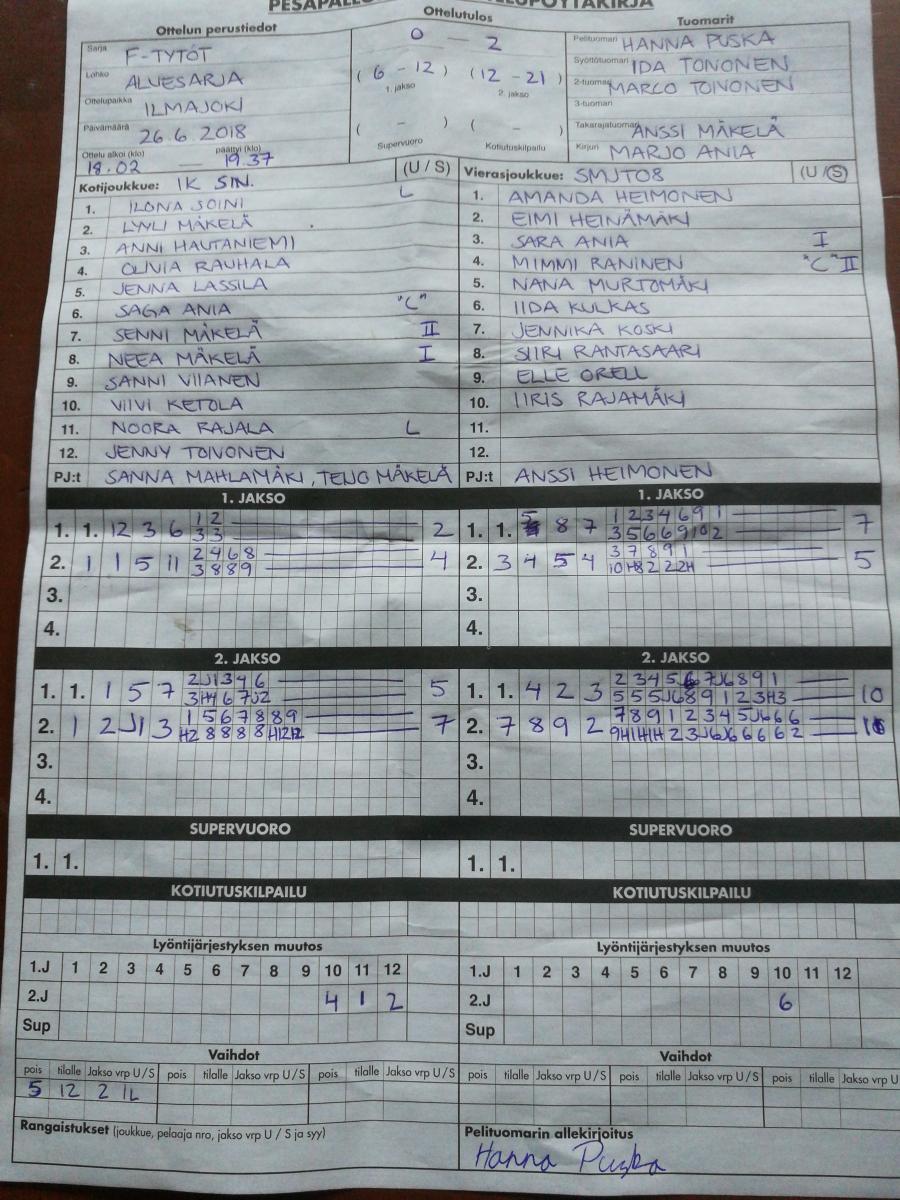 Ottelun perustiedot
Ottelutulos
Tuomarit
Sarja F-TYTÖT
Lohko ALUESARJA
Ottelupaikka ILMAJOKI
Päivämäärä 26.6.2018
Ottelu alkoi (klo) päättyi (klo)
18.02 — 19.37
0 — 2
( 6 - 12 ) ( 12 - 21 )
1. jakso 2. jakso
( - ) ( - )
Supervuoro Kotiutuskilpailu
Pelituomari HANNA PUSKA
Syöttötuomari IDA TONONEN
2-tuomari MARCO TOIVONEN
3-tuomari
Takarajatuomari ANSSI MÄKELÄ
Kirjuri MARJO ANIA
Kotijoukkue: IK SIN. (U / S)
1. ILONA SOINI L
2. LYYLI MÄKELÄ
3. ANNI HAUTANIEMI
4. OLIVIA RAUHALA
5. JENNA LASSILA
6. SAGA ANIA "C"
7. SENNI MÄKELÄ II
8. NEEA MÄKELÄ I
9. SANNI VIIANEN
10. VIIVI KETOLA
11. NOORA RAJALA L
12. JENNY TOIVONEN
PJ:t SANNA MAHLAMÄKI, TEIJO MÄKELÄ
Vierasjoukkue: SMJT08 (U / S)
1. AMANDA HEIMONEN
2. EIMI HEINÄMÄKI
3. SARA ANIA I
4. MIMMI RANINEN "C" II
5. NANA MURTOMÄKI
6. IIDA KULKAS
7. JENNIKA KOSKI
8. SIIRI RANTASAARI
9. ELLE ORELL
10. IIRIS RAJAMÄKI
11.
12.
PJ:t ANSSI HEIMONEN
1. JAKSO
1. 1. 12 3 6 1 2 2
3 3
2. 1 1 5 11 2 4 6 8 4
3 8 8 9
3.
4.
1. JAKSO
1. 1. 5 8 7 1 2 3 4 6 9 1 7
3 5 6 6 9 10 2
2. 3 4 5 4 3 7 8 9 1 5
10 H8 2 2 2H
3.
4.
2. JAKSO
1. 1. 1 5 7 2 J1 3 4 6 5
3 H4 6 7 J2
2. 1 2 J1 3 1 5 6 7 8 8 9 7
H2 8 8 8 8 H12 12
3.
4.
2. JAKSO
1. 1. 4 2 3 2 3 4 5 6 7 J6 8 9 1 10
5 5 5 J6 8 9 1 2 3 H3
2. 7 8 9 2 7 8 9 1 2 3 4 5 J6 6 6
3.
4.
SUPERVUORO
1. 1.
SUPERVUORO
1. 1.
KOTIUTUSKILPAILU
KOTIUTUSKILPAILU
Lyöntijärjestyksen muutos
1.J 1 2 3 4 5 6 7 8 9 10 11 12
2.J 4 1 2
Sup
Lyöntijärjestyksen muutos
1.J 1 2 3 4 5 6 7 8 9 10 11 12
2.J 6
Sup
Vaihdot
pois tilalle Jakso vrp U / S pois tilalle Jakso vrp U / S pois tilalle Jakso vrp U / S
5 12 2 1L
Vaihdot
pois tilalle Jakso vrp U / S pois tilalle Jakso vrp U / S pois tilalle Jakso vrp U
Rangaistukset (joukkue, pelaaja nro, jakso vrp U / S ja syy)
Pelituomarin allekirjoitus
Hanna Puska